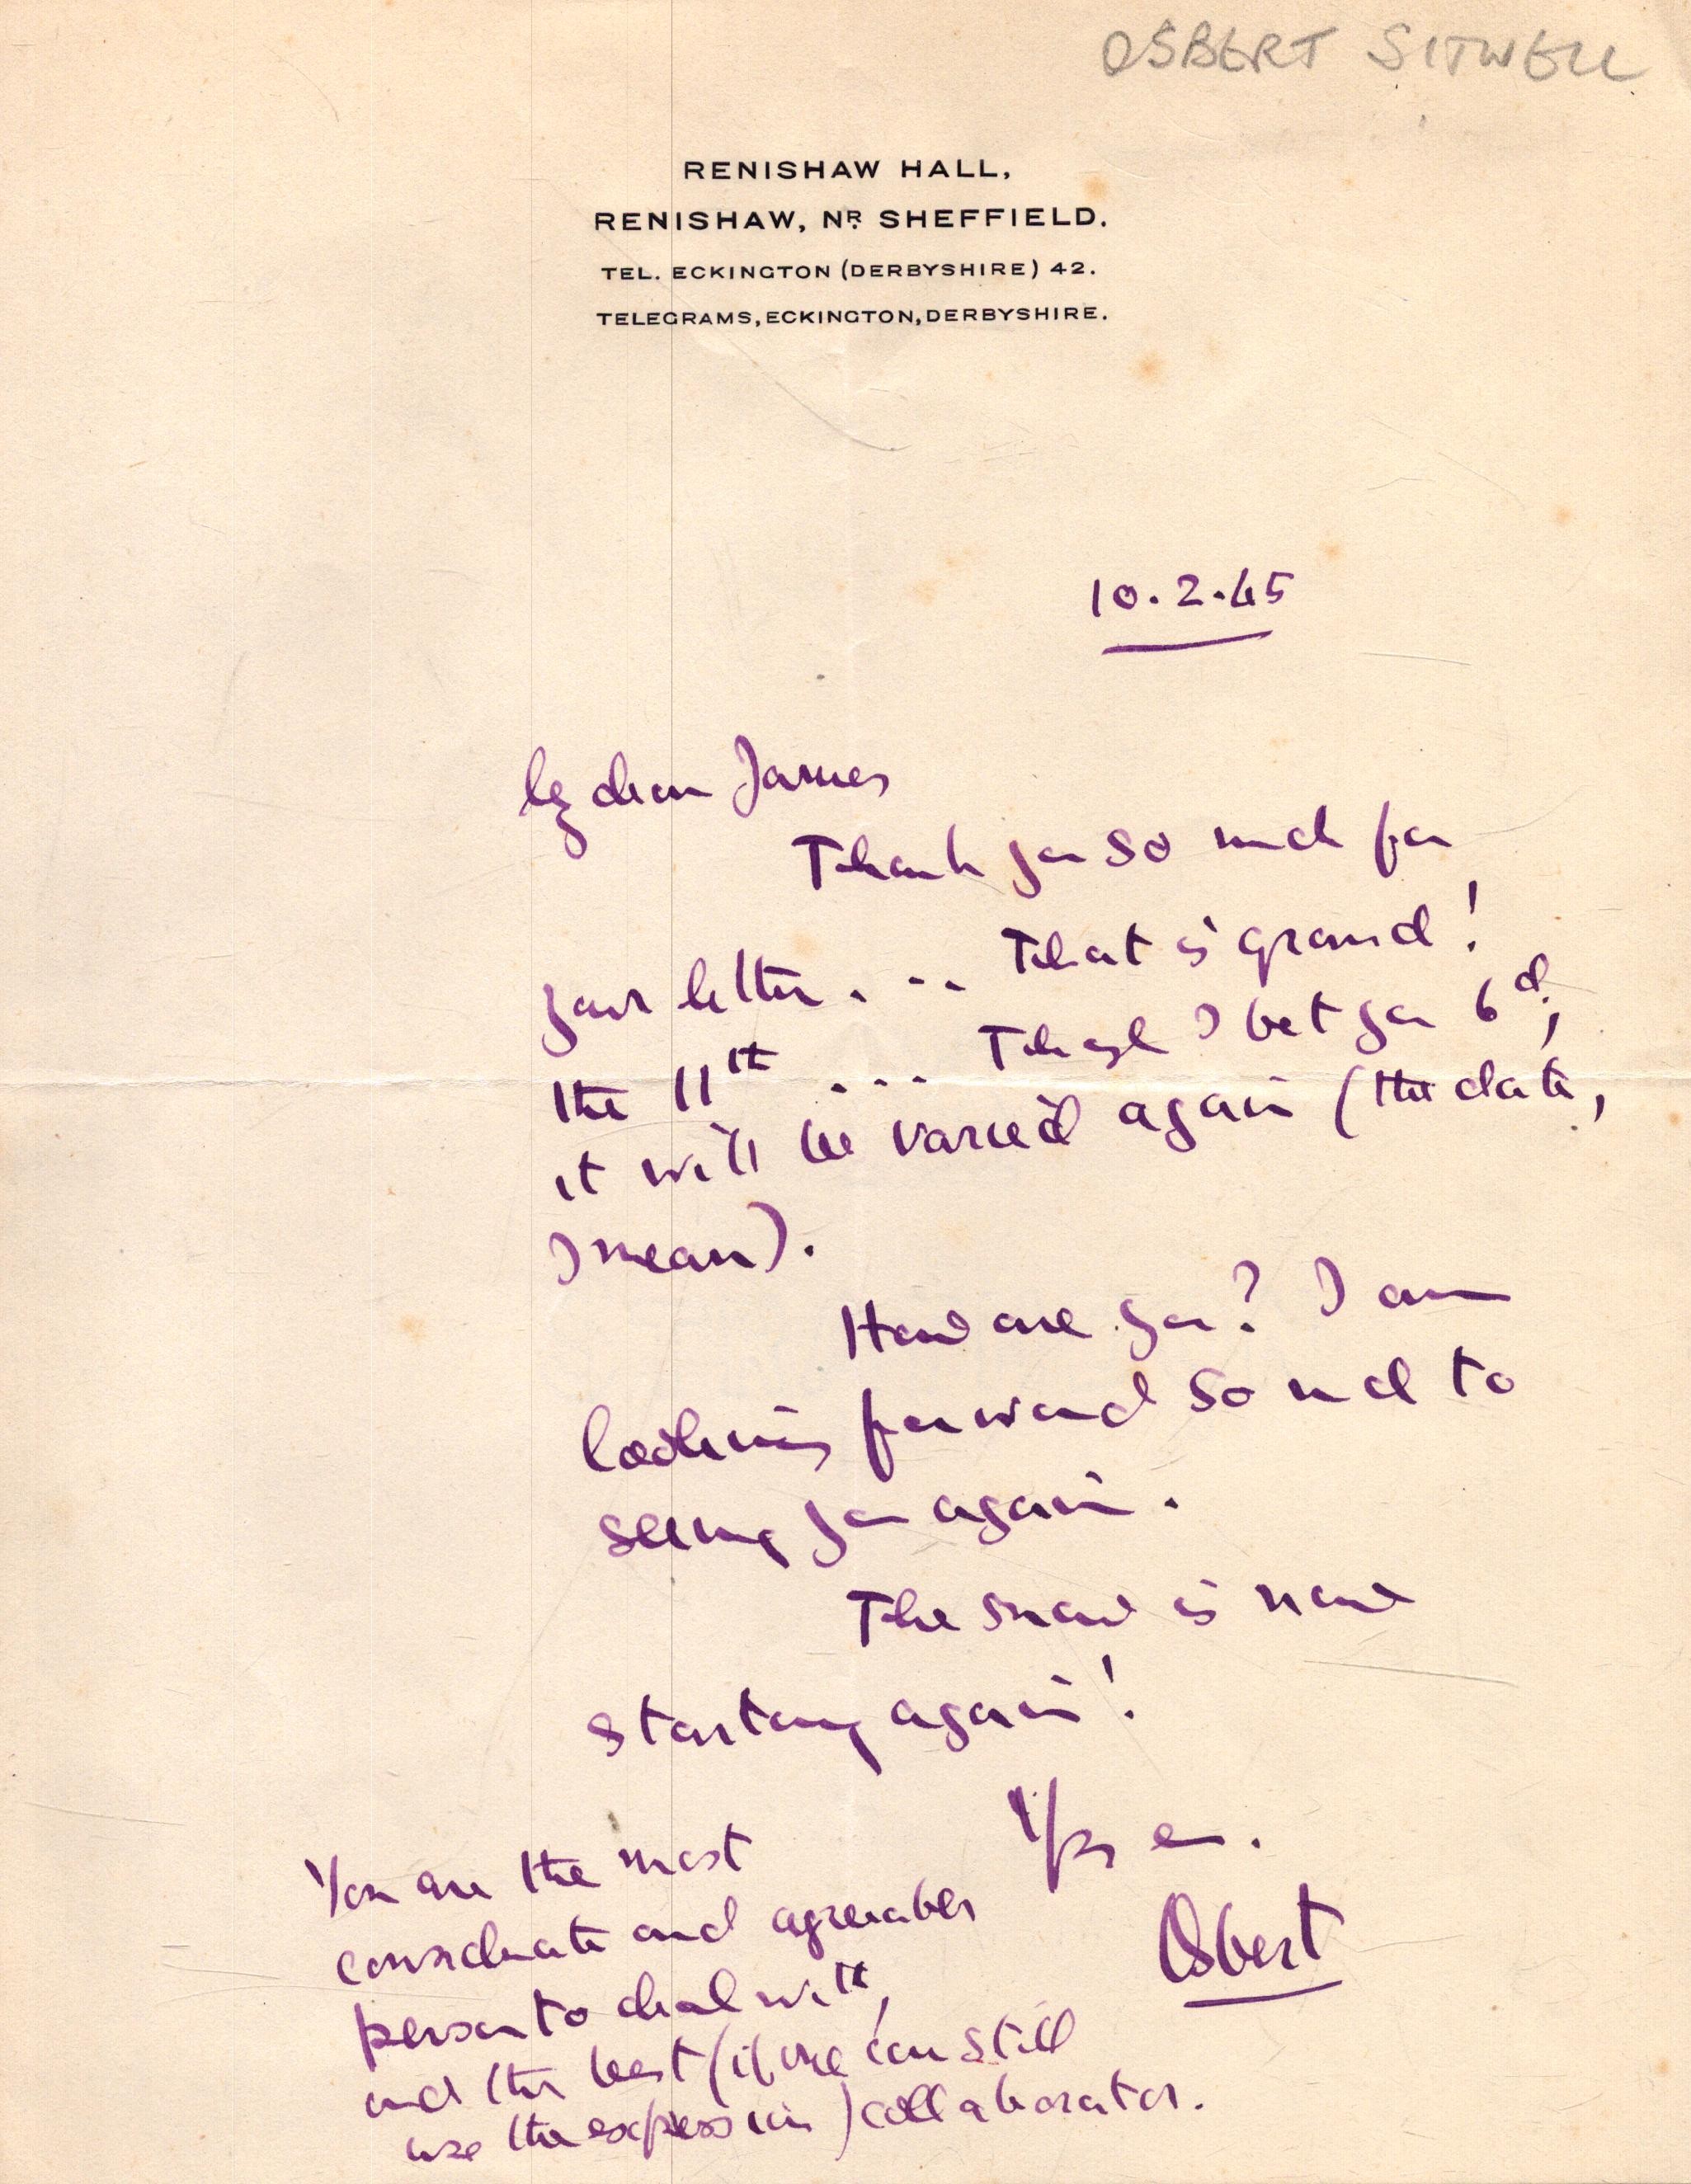 OSBERT SITWELL
RENISHAW HALL,
RENISHAW, NR. SHEFFIELD.
TEL. ECKINGTON (DERBYSHIRE) 42.
TELEGRAMS, ECKINGTON, DERBYSHIRE.
10.2.45
My dear James
Thank you so much for
your letter. .. That is grand!
the 11th ... Though I bet you 6d.,
it will be varied again (the date,
I mean).
How are you? I am
looking forward so much to
seeing you again.
The snow is now
starting again!
Yrs ever.
Osbert
You are the most
considerate and agreeable
person to deal with,
and the best (if one can still
use the expression) collaborator.